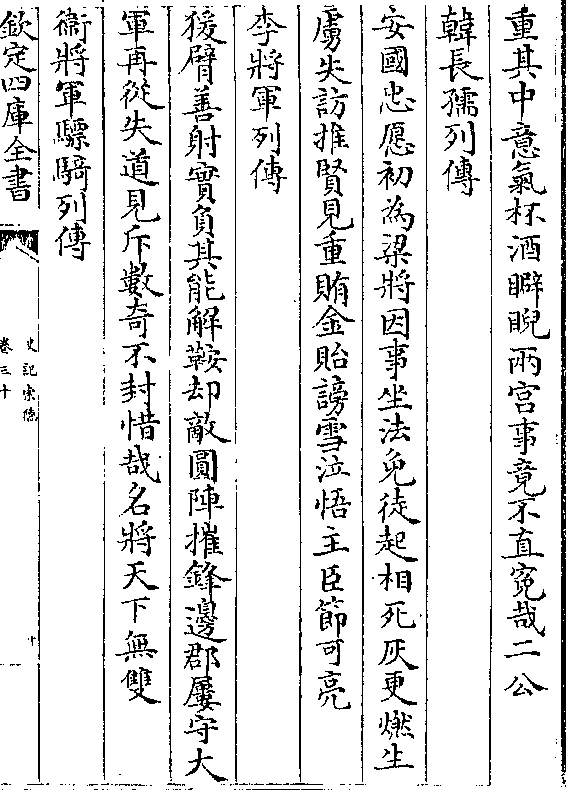 重其中意氣杯酒睥睨兩宮事竟不直寃哉二公
韓長孺列傳
安國忠愿初為梁將因事坐法免徒起相死灰更燃生
虜失訪推賢見重賄金貽謗雪泣悟主臣節可亮
李將軍列傳
猨臂善射實負其能解鞍却敵圓陣摧鋒邊郡屢守大
軍再從失道見斥數奇不封惜哉名將天下無雙
衛將軍驃騎列傳
欽定四庫全書
史記索隱
卷三十
十